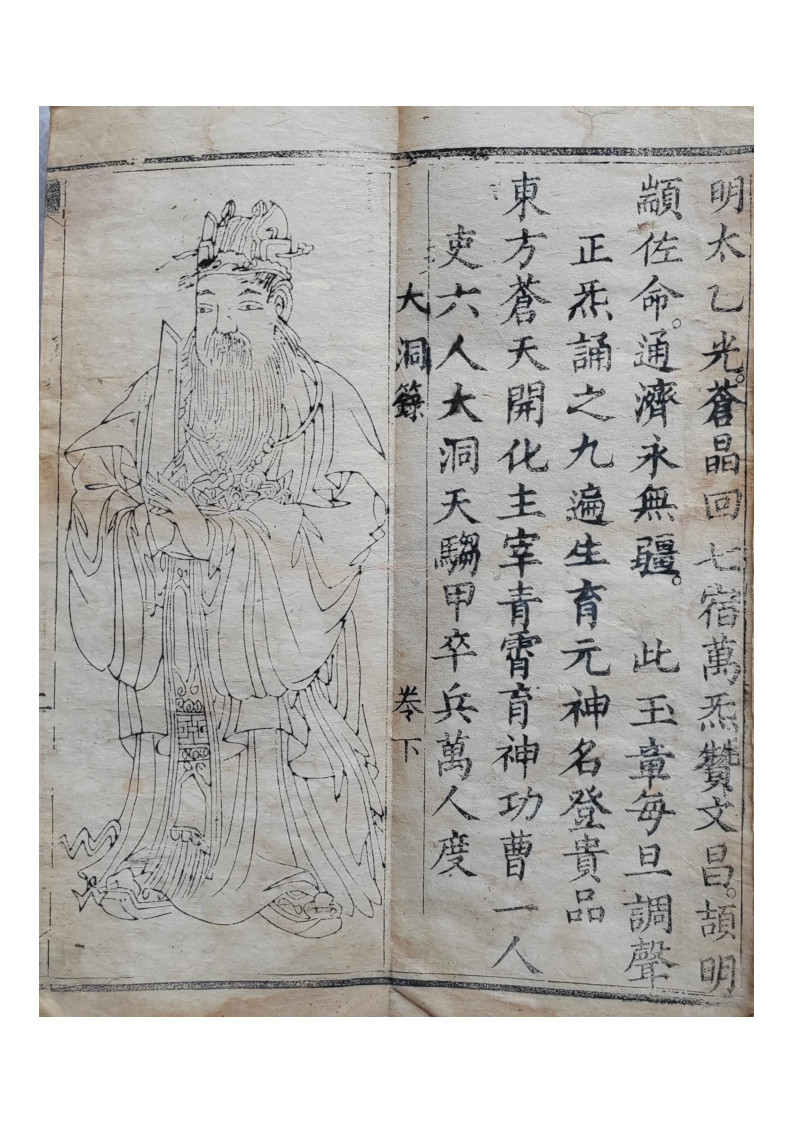 明太乙光。蒼晶回七宿萬炁贊文昌。頡明
顓佐命。通濟永無疆。　此玉章每旦調聲
正炁誦之九遍生育元神名登貴品
東方蒼天開化主宰青霄育神功曹一人
吏六人大洞天騶甲卒兵萬人度
大洞籙　卷下